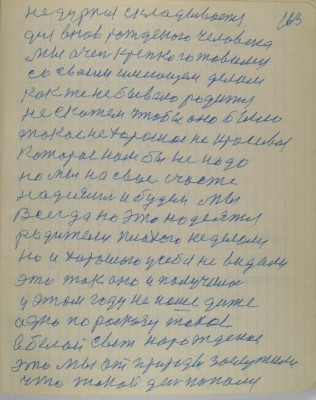 163
не дурно складывается
для вновь рожденого человека
мы очен крепко готовили
со своим имющем делам
как то не бывало родит
не скажем чтобы оно было
такое не хорошое не красивое
которое нам бы не надо
но мы на свое счасте
надеялис и будем мы
всегда на это надеятся
родители плохого не делали
но и хорошого у себя не видали
это так оно и получилос
у этом году не наше даже
одно по роскажу такое
в белой свет нарождение
это мы от природы заслужили
что такой ден попали